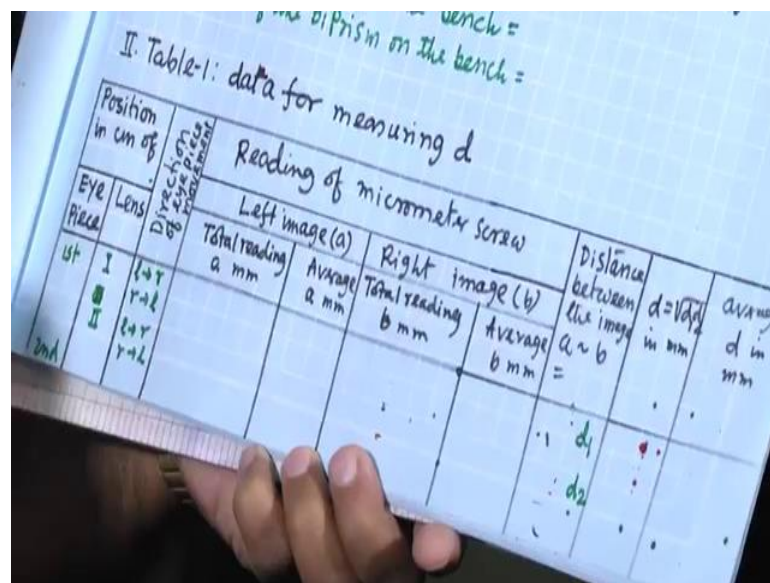 bench =
of the biprism on the bench =
II. Table-1: data for measuring d
Position in cm of
Direction of eye piece movement
Reading of micrometer screw
Distance between the image a ~ b =
d = √d₁d₂ in mm
d in mm
Eye Piece
Lens
Left image (a)
Right image (b)
Total reading a mm
Average a mm
Total reading b mm
Average b mm
1st I l→r
r→l
II l→r
r→l
2nd
d₁
d₂